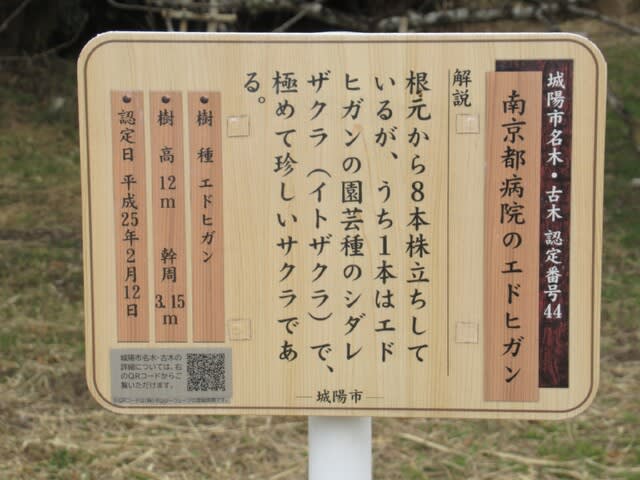 城陽市名木・古木 認定番号44
南京都病院のエドヒガン
解説
根元から8本株立ちして
いるが、うち1本はエド
ヒガンの園芸種のシダレ
ザクラ（イトザクラ）で、
極めて珍しいサクラであ
る。
樹種 エドヒガン
樹高 12m 幹周 3.15m
認定日 平成25年2月12日
城陽市名木・古木の
詳細については、右
のQRコードからご
覧いただけます。
城陽市